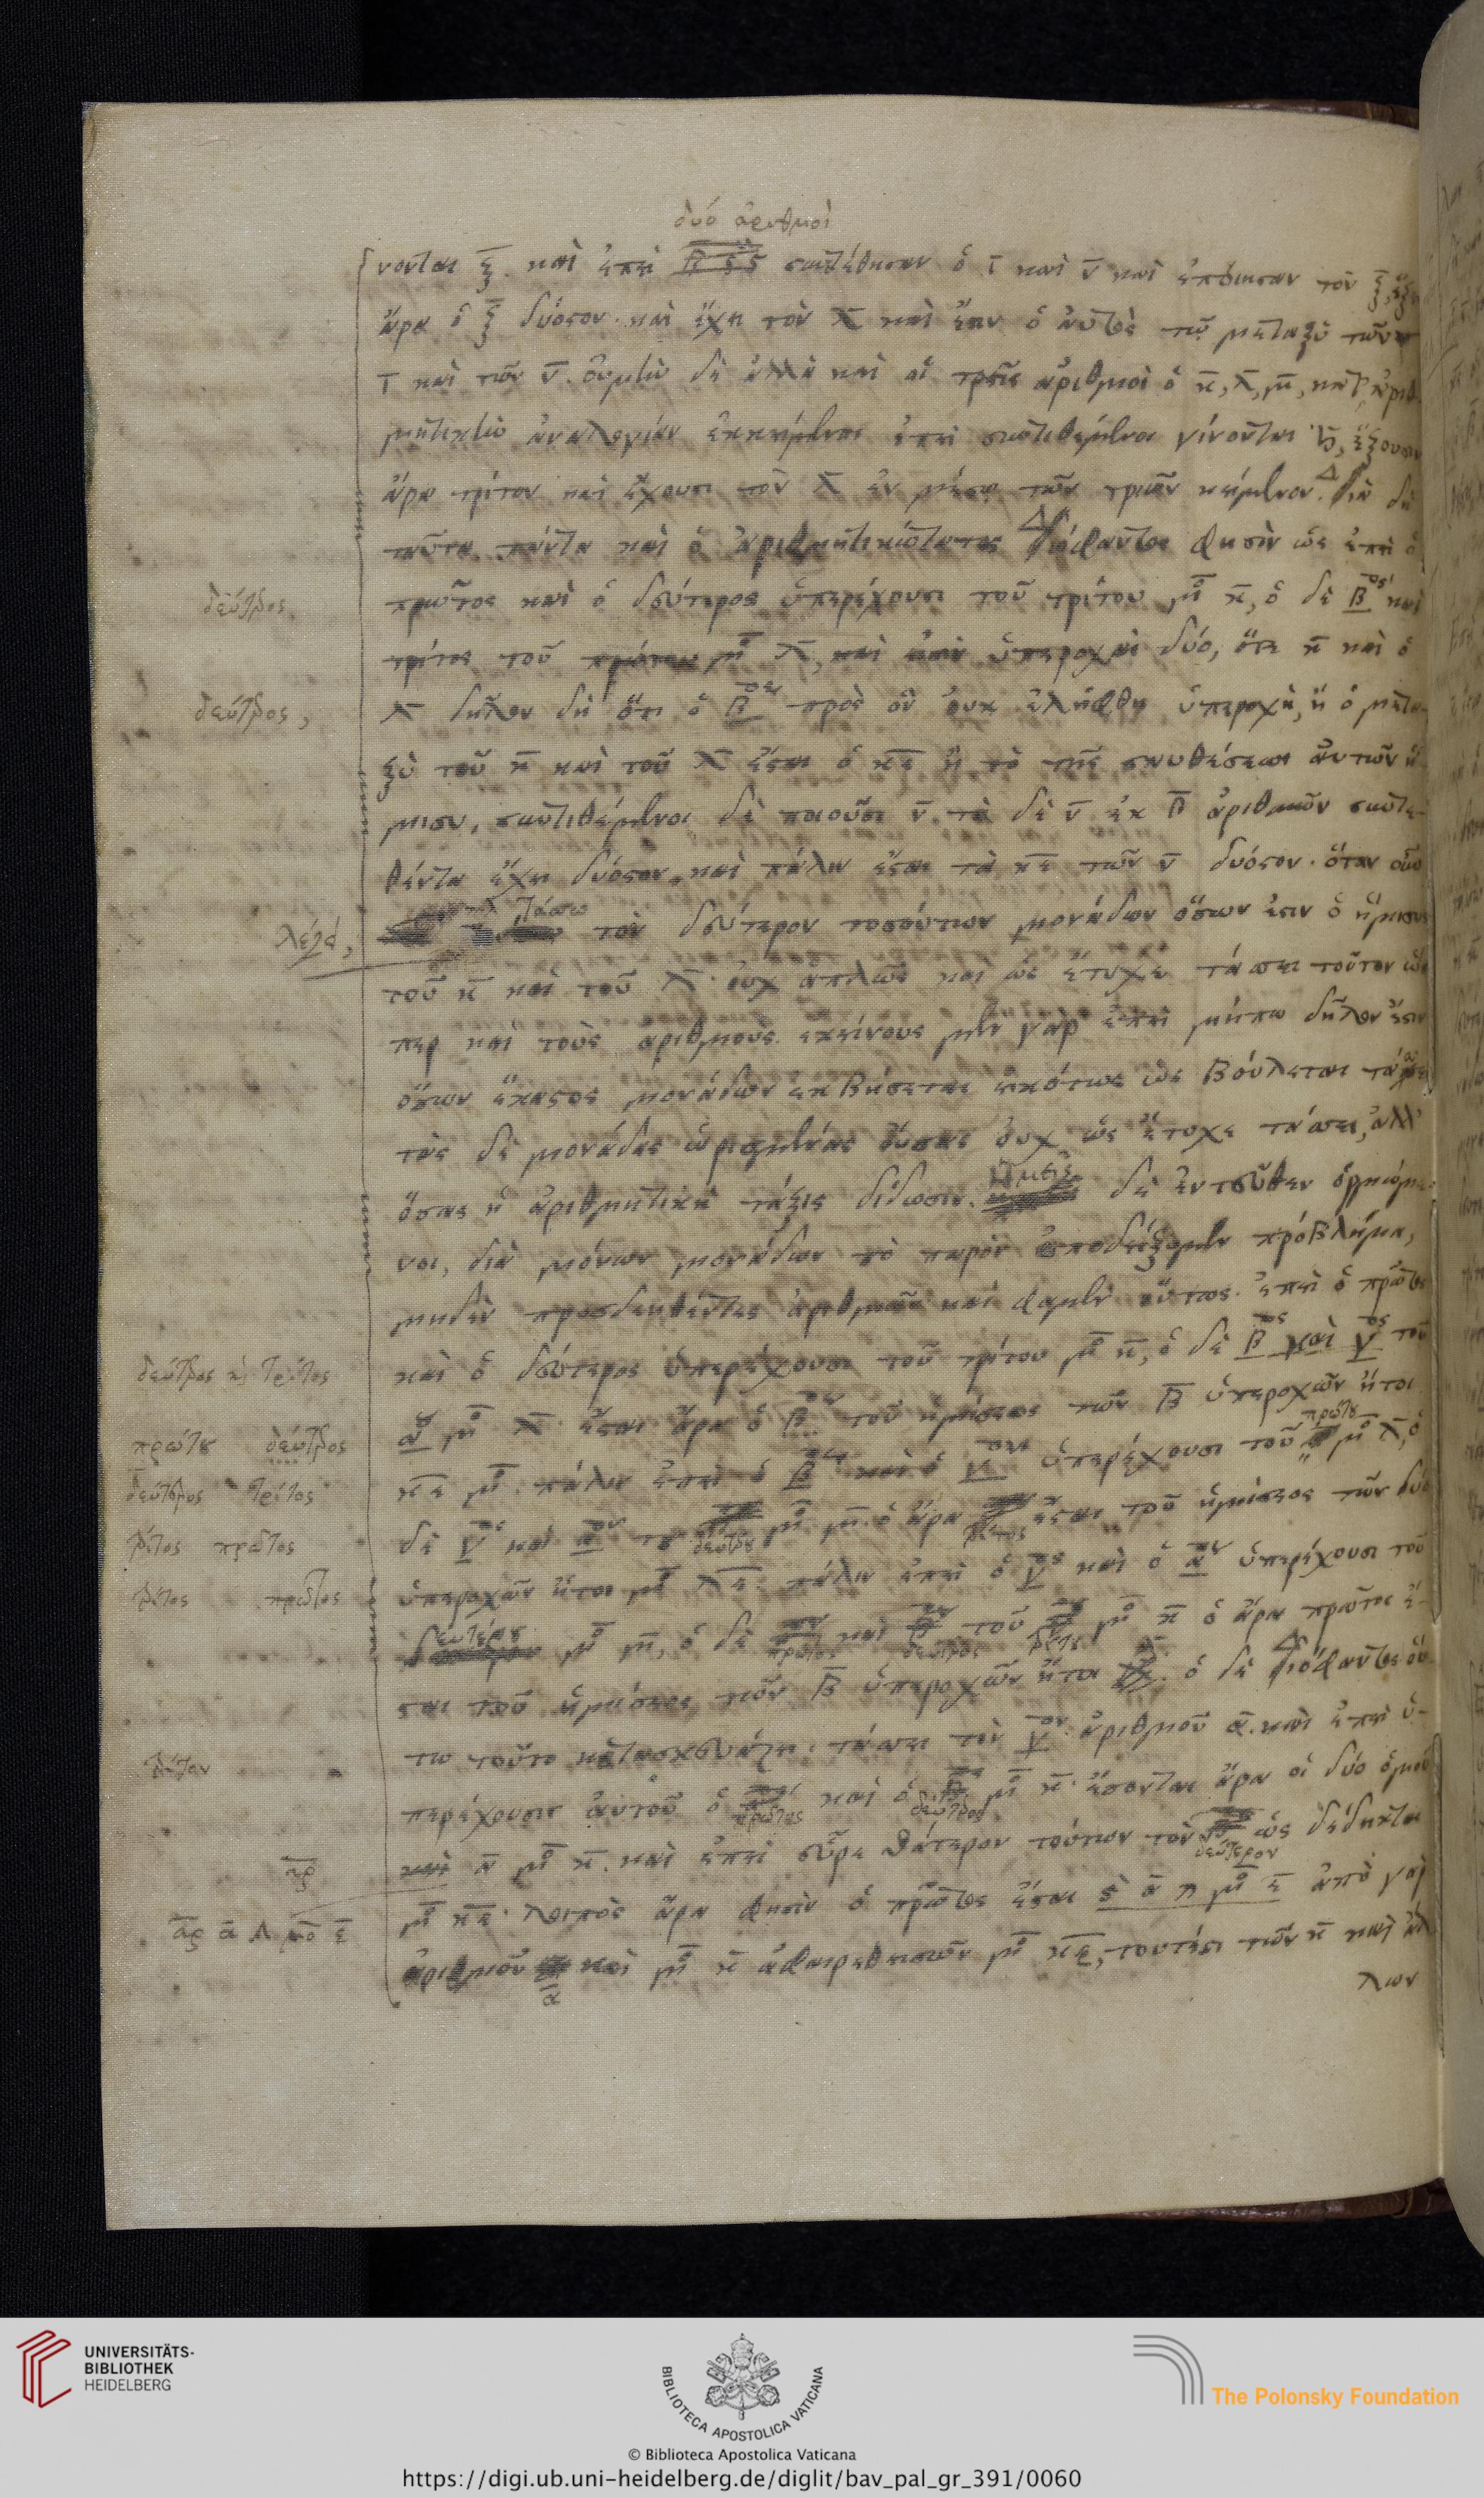 δύο ἀριθμοὶ
νονται ξ̄. καὶ ἐπεὶ συνετέθησαν ὁ ῑ καὶ ν̄ καὶ ἐποίησαν τὸν ξ̄,
ἄρα ὁ ξ̄ δύοστον. καὶ ἔχει τὸν λ̄ καὶ ἔστιν ὁ αὐτὸς τῷ μεταξὺ τῶν
ῑ καὶ τῶν ν̄. οὐ μὴν δὲ ἀλλὰ καὶ οἱ τρεῖς ἀριθμοὶ ὁ κ̄, λ̄, μ̄, κατ' ἀριθ
μητικὴν ἀναλογίαν ἐκκείμενοι ἐπεὶ συντιθέμενοι γίνονται ϟ̄, ἕξουσιν
ἄρα τρίτον καὶ ἔχουσι τὸν λ̄ ἐν μέσῳ τῶν τριῶν κείμενον. Διὰ δὴ
ταῦτα πάντα καὶ ὁ ἀριθμητικώτατος Διόφαντος φησὶν ὡς ἐπεὶ ὁ
δεύτερος
πρῶτος καὶ ὁ δεύτερος ὑπερέχουσι τοῦ τρίτου μ̊ κ̄, ὁ δὲ β̄ος καὶ
τρίτος τοῦ πρώτου μ̊ λ̄, καὶ εἰσὶν ὑπεροχαὶ δύο, ὅ τε κ̄ καὶ ὁ
δεύτερος,
λ̄ δῆλον δὴ ὅτι ὁ β̄ος πρὸς ὃν οὐκ ἐλήφθη ὑπεροχὴ, ἢ ὁ μετα-
ξὺ τοῦ κ̄ καὶ τοῦ λ̄ ἔσται ὁ κ̄ε̄ ἢ τὸ τῆς συνθέσεως αὐτῶν ἥ-
μισυ, συντιθέμενοι δὲ ποιοῦσι ν̄. τὰ δὲ ν̄ ἐκ β̄ ἀριθμῶν συντε-
θέντα ἔχει δύοστον, καὶ πάλιν ἔσται τὰ κ̄ε̄ τῶν ν̄ δυόστον. ὅταν οὖν
λέγω,
τάσσω τὸν δεύτερον τοσούτων μονάδων ὅσων ἐστιν ὁ ἥμισυς
τοῦ κ̄ καὶ τοῦ λ̄. οὐχ ἁπλῶς καὶ ὡς ἔτυχε τάσσει τοῦτον ὥσ
περ καὶ τοὺς ἀριθμοὺς. ἐκείνους μὲν γὰρ ἐπεὶ μήπω δῆλον ἐστιν
ὅσων ἕκαστος μονάδων ἐκβήσεται εἰκότως ὡς βούλεται τάσσει
τὰς δὲ μονάδας ὡρισμένας οὔσας οὐχ ὡς ἔτυχε τάσσει, ἀλλ'
ὅσας ἡ ἀριθμητικὴ τάξις δίδωσιν. ἡμεῖς δὲ ἐντεῦθεν ὁρμώμε-
νοι, διὰ μόνων μονάδων τὸ παρὸν ἀποδείξομεν πρόβλημα,
μηδὲν προσδεηθέντες ἀριθμῶν καὶ φαμὲν οὕτως. ἐπεὶ ὁ πρῶτος
δεύτερος κ̀ τρίτος
καὶ ὁ δεύτερος ὑπερέχουσι τοῦ τρίτου μ̊ κ̄, ὁ δὲ β̄ος καὶ γ̄ος τοῦ
πρώτου δεύτερος
ᾱου μ̊ λ̄. ἔσται ἄρα ὁ β̄ος τοῦ ἡμίσεος τῶν β̄ ὑπεροχῶν ἤτοι
δεύτερος τρίτος
κ̄ε̄ μ̊. πάλιν ἐπεὶ ὁ β̄ος καὶ ὁ γ̄ος ὑπερέχουσι τοῦ πρώτου μ̊ λ̄, ὁ
τρίτος πρῶτος
δὲ γ̄ος καὶ ᾱος το δευτέρου μ̊ μ̄. ὁ ἄρα τρίτος ἔσται τοῦ ἡμίσεος τῶν δύο
τρίτος πρῶτος
ὑπεροχῶν ἤτοι μ̊ λ̄ε̄. πάλιν ἐπεὶ ὁ γ̄ος καὶ ὁ ᾱος ὑπερέχουσι τοῦ
δευτέρου μ̊ μ̄, ὁ δὲ πρῶτος καὶ δεύτερος τοῦ τρίτου μ̊ κ̄ ὁ ἄρα πρῶτος ἔ-
σται τοῦ ἡμίσεος τῶν β̄ ὑπεροχῶν ἤτοι λ̄. ὁ δὲ Διόφαντος οὕ
τρίτον
τω τοῦτο κατασκευάζει. τάσσει τὸν γ̄ον ἀριθμοῦ ᾱ. καὶ ἐπεὶ ὑ-
περέχουσιν αὐτοῦ ὁ πρῶτος καὶ ὁ δεύτερος μ̊ κ̄. ἔσονται ἄρα οἱ δύο ὁμοῦ
ᾱ μ̊ κ̄. καὶ ἐπεὶ εὗρε θάτερον τούτων τὸν δεύτερον ὡς δέδεικται
ἀρ ᾱ Λ μ̊ ε̄
μ̊ κ̄ε̄. λοιπὸς ἄρα φησὶν ὁ πρῶτος ἔσται ᾱ Λ μ̊ ε̄ ἀπὸ γὰρ
ἀριθμοῦ ᾱ καὶ μ̊ κ̄ ἀφαιρεθεισῶν μ̊ κ̄ε̄, τουτέστι τῶν κ̄ καὶ ἀλ
λων
UNIVERSITÄTS-
BIBLIOTHEK
HEIDELBERG
BIBLIOTECA APOSTOLICA VATICANA
The Polonsky Foundation
© Biblioteca Apostolica Vaticana
https://digi.ub.uni-heidelberg.de/diglit/bav_pal_gr_391/0060